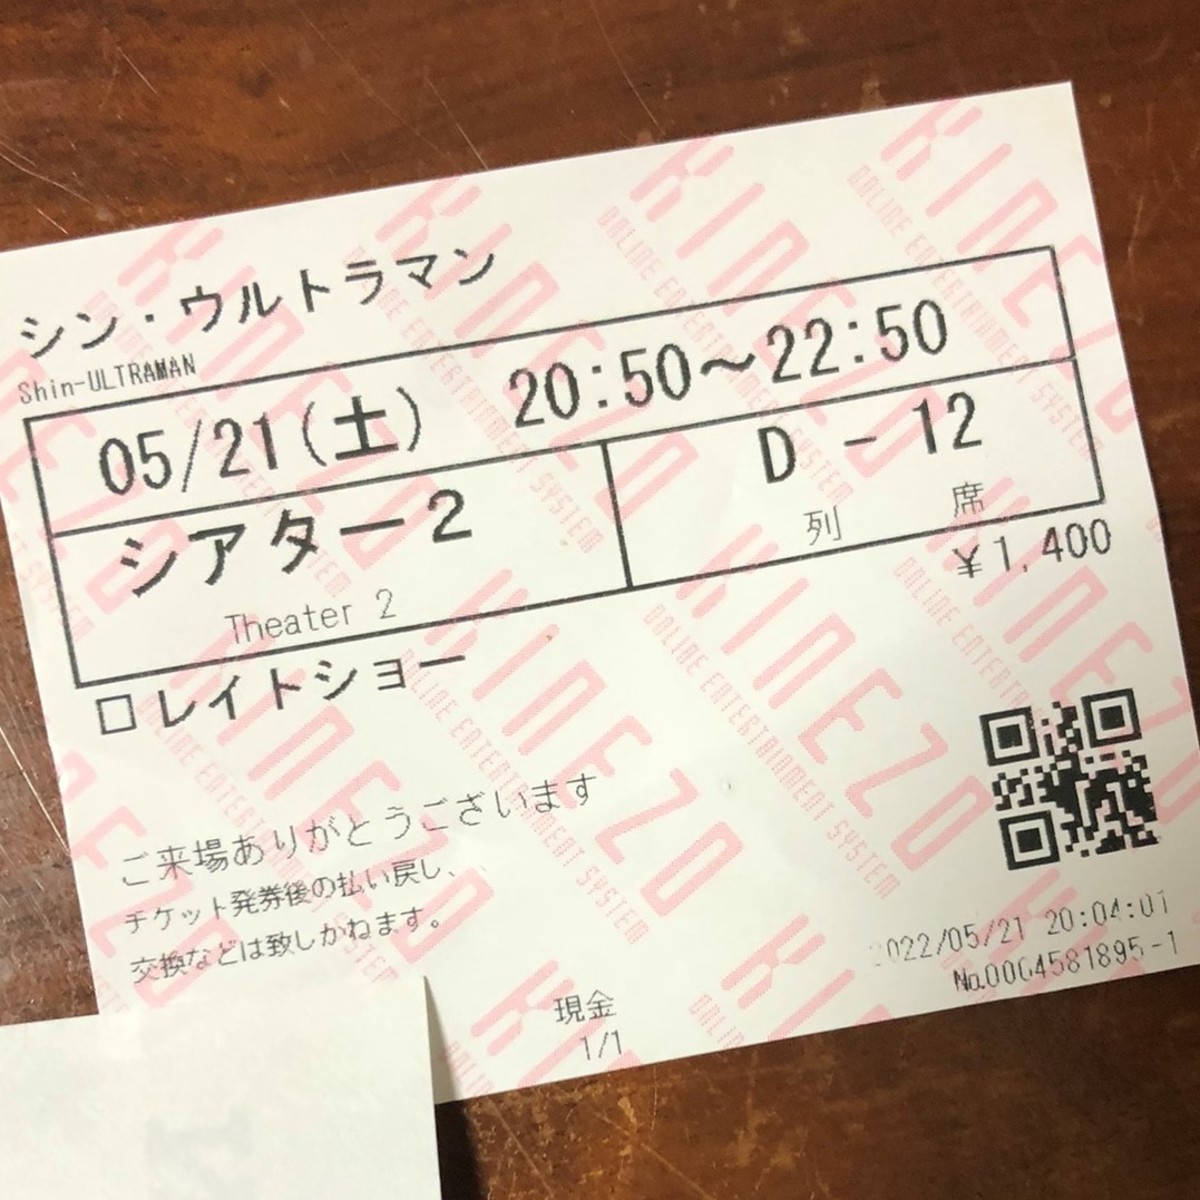 シン・ウルトラマン
Shin-ULTRAMAN
05/21(土) 20:50～22:50
シアター2
Theater 2
D - 12
列 席
¥1,400
□レイトショー
ご来場ありがとうございます
チケット発券後の払い戻し、
交換などは致しかねます。
2022/05/21 20:04:01
No.0004581895-1
現金
1/1
KINEZO
ONLINE ENTERTAINMENT SYSTEM